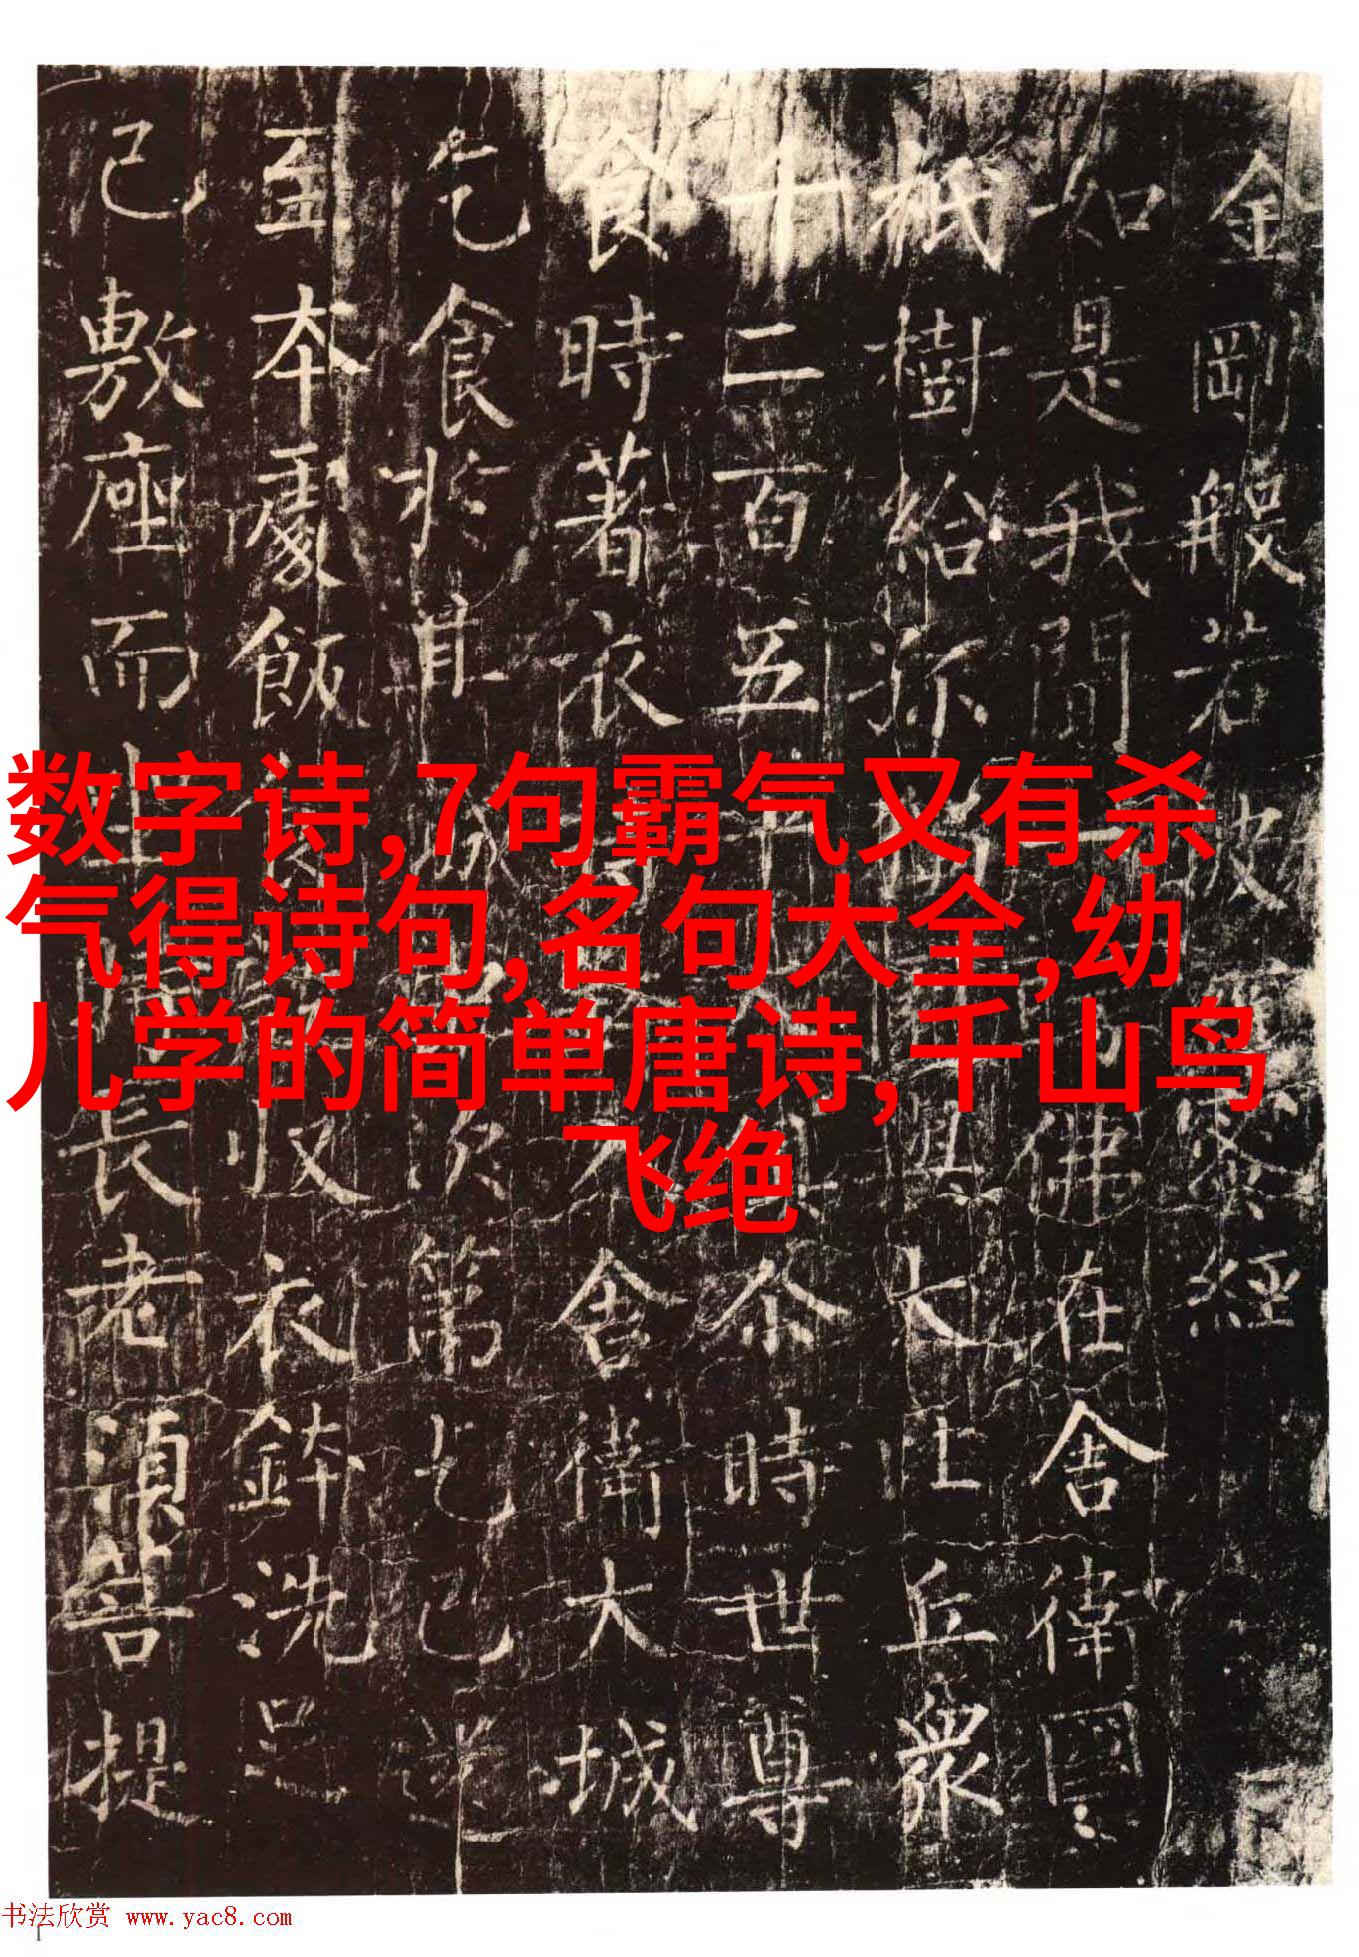 数字诗,7句霸气又有杀
气得诗句,名句大全,幼
儿学的简单唐诗,千山鸟
飞绝
金剛般若波蜜經
如是我聞一佛在舍衛國
祇樹給孤大比丘衆
二百五十俱尒時世尊
食時著衣舍衛大城
乞食於其城次第乞已還
至本處飯收衣鉢洗足
已敷座而坐長老須菩提
书法欣赏 www.yac8.com